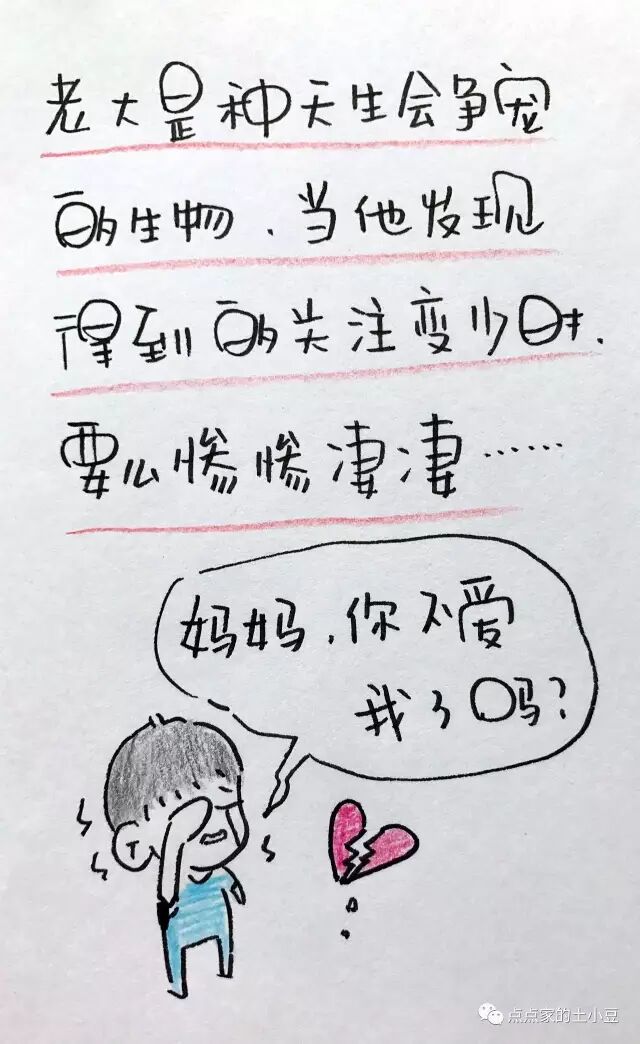 老大是种天生会争宠
的生物、当他发现
得到的关注变少时、
要么惨惨凄凄……
妈妈、你不爱
我了吗?
点点家的土小豆